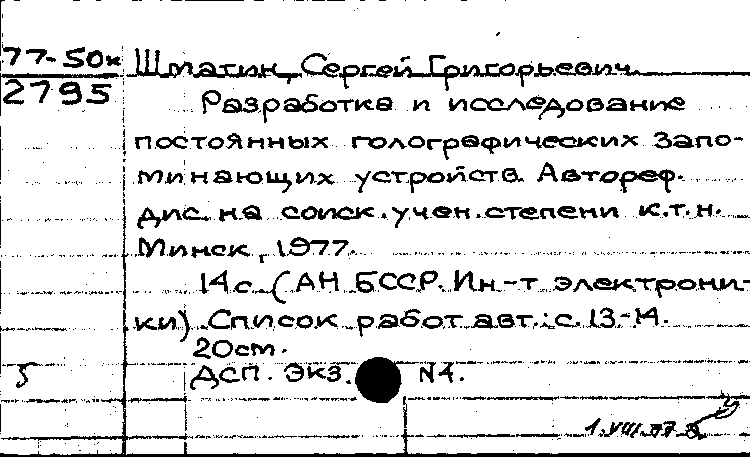 77-50к Шматин, Сергей Григорьевич.
2795 Разработка и исследование
постоянных голографических запо-
минающих устройств. Автореф.
дис. на соиск. учен. степени к.т.н.
Минск, 1977.
14 с. (АН БССР. Ин-т электрони-
ки). Список работ авт.: с. 13-14.
20см.
5 ДСП. экз. N4.
1.VIII.77